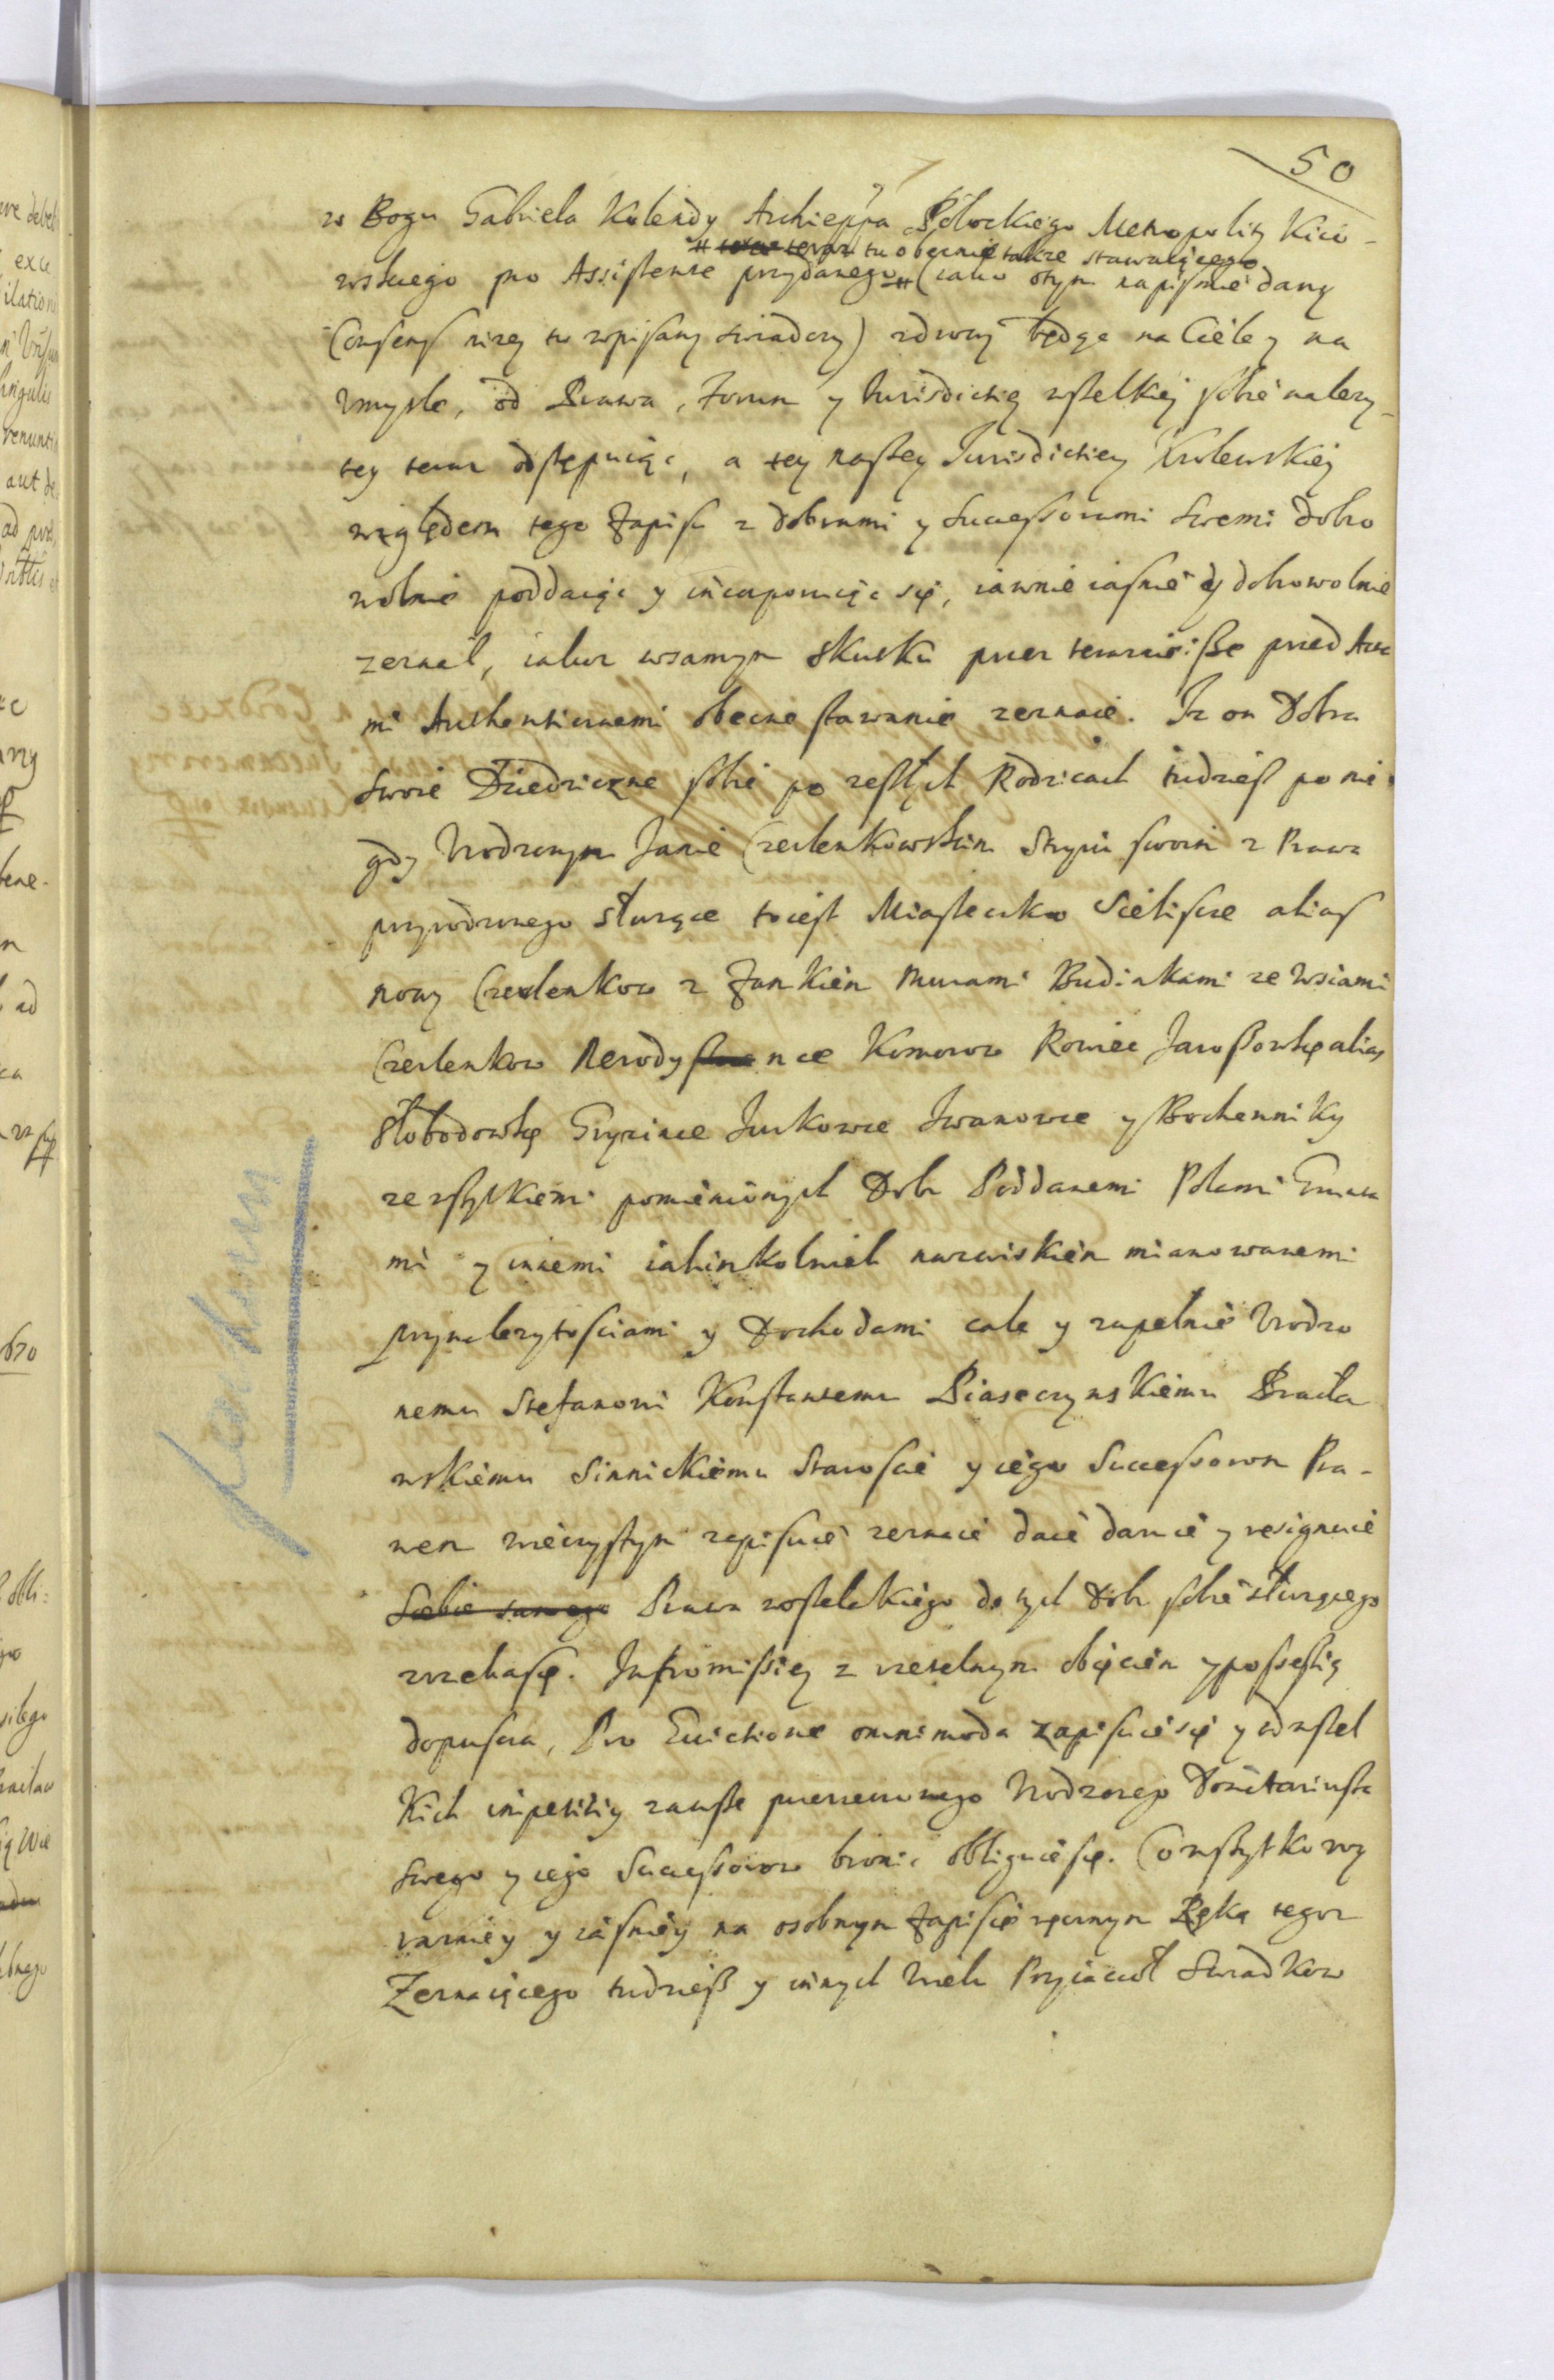 50
w Bogu Gabriela Kolendy Archieppa Połockiego Metropolity Kiio-
# teraz tu obecnie także stawaiącego
wskiego pro Assistense przydanego # (iako otym na pismie dany
Consens niżey tu wpisany swiadczy) zdrowy będąc na Ciele y na
Vmysle, od Prawa, Forum y Iurisdictiey wszelkiey sobie należy-
tey teraz odstępuiąc, a tey naszey Iurisdictiey Krolewskiey
względem tego Zapisu z dobrami y Successorami swemi dobro
wolnie poddaiąc y incorporuiąc się, iawnie iasnie y dobrowolnie
zeznał, iakoz wsamym skutku przez teraznieisze przed Acta
mi Authenticznemi obecne stawanie zeznaie. Iz on Dobra
swoie Dziedziczne sobie po zeszłych Rodzicach tudziesz po nie
gdy Vrodzonym Janie Czerlenkowskim Stryiu swoim z Prawa
przyrodzonego służące toiest Miasteczko Sieliscze alias
nowy Czerlenkow z Zamkiem Murami Budinkami ze Wsiami
Czerlenkow Nerodynce Komorow Rowiec Jaroszowkę alias
Słobodowkę Hryzince Jurkowce Iwanowce y Bochenniky
ze wszytkiemi pomienionych Dobr Poddanemi Polami Grunta
mi y innemi iakimkolwiek nazwiskiem mianowanemi
przynależytosciami y Dochodami cale y zupełnie Vrodzo
nemu Stefanowi Konstantemu Piaseczynskiemu Bracła
wskiemu Sinnickiemu Staroscie y iego Successorom Pra-
wem wieczystym zapisuie zeznaie daie daruie y resignuie
Siebie samego Prawa wszelakiego do tych Dobr sobie służącego
zrzekasię. Intromissiey z rzetelnym obięciem y possessią
dopuscza, Pro Evictione omnimoda zapisuiesię y odwszel
kich impetitiy zawsze przerzeczonego Vrodzonego Donatariusza
swego y iego Successorow bronic obliguiesię. Co wszytko wy
razniey y iasniey na osobnym Zapisie ręcznym Ręką tegoz
Zeznaiącego tudziesz y innych Wielu Przyiacioł Swiadkow